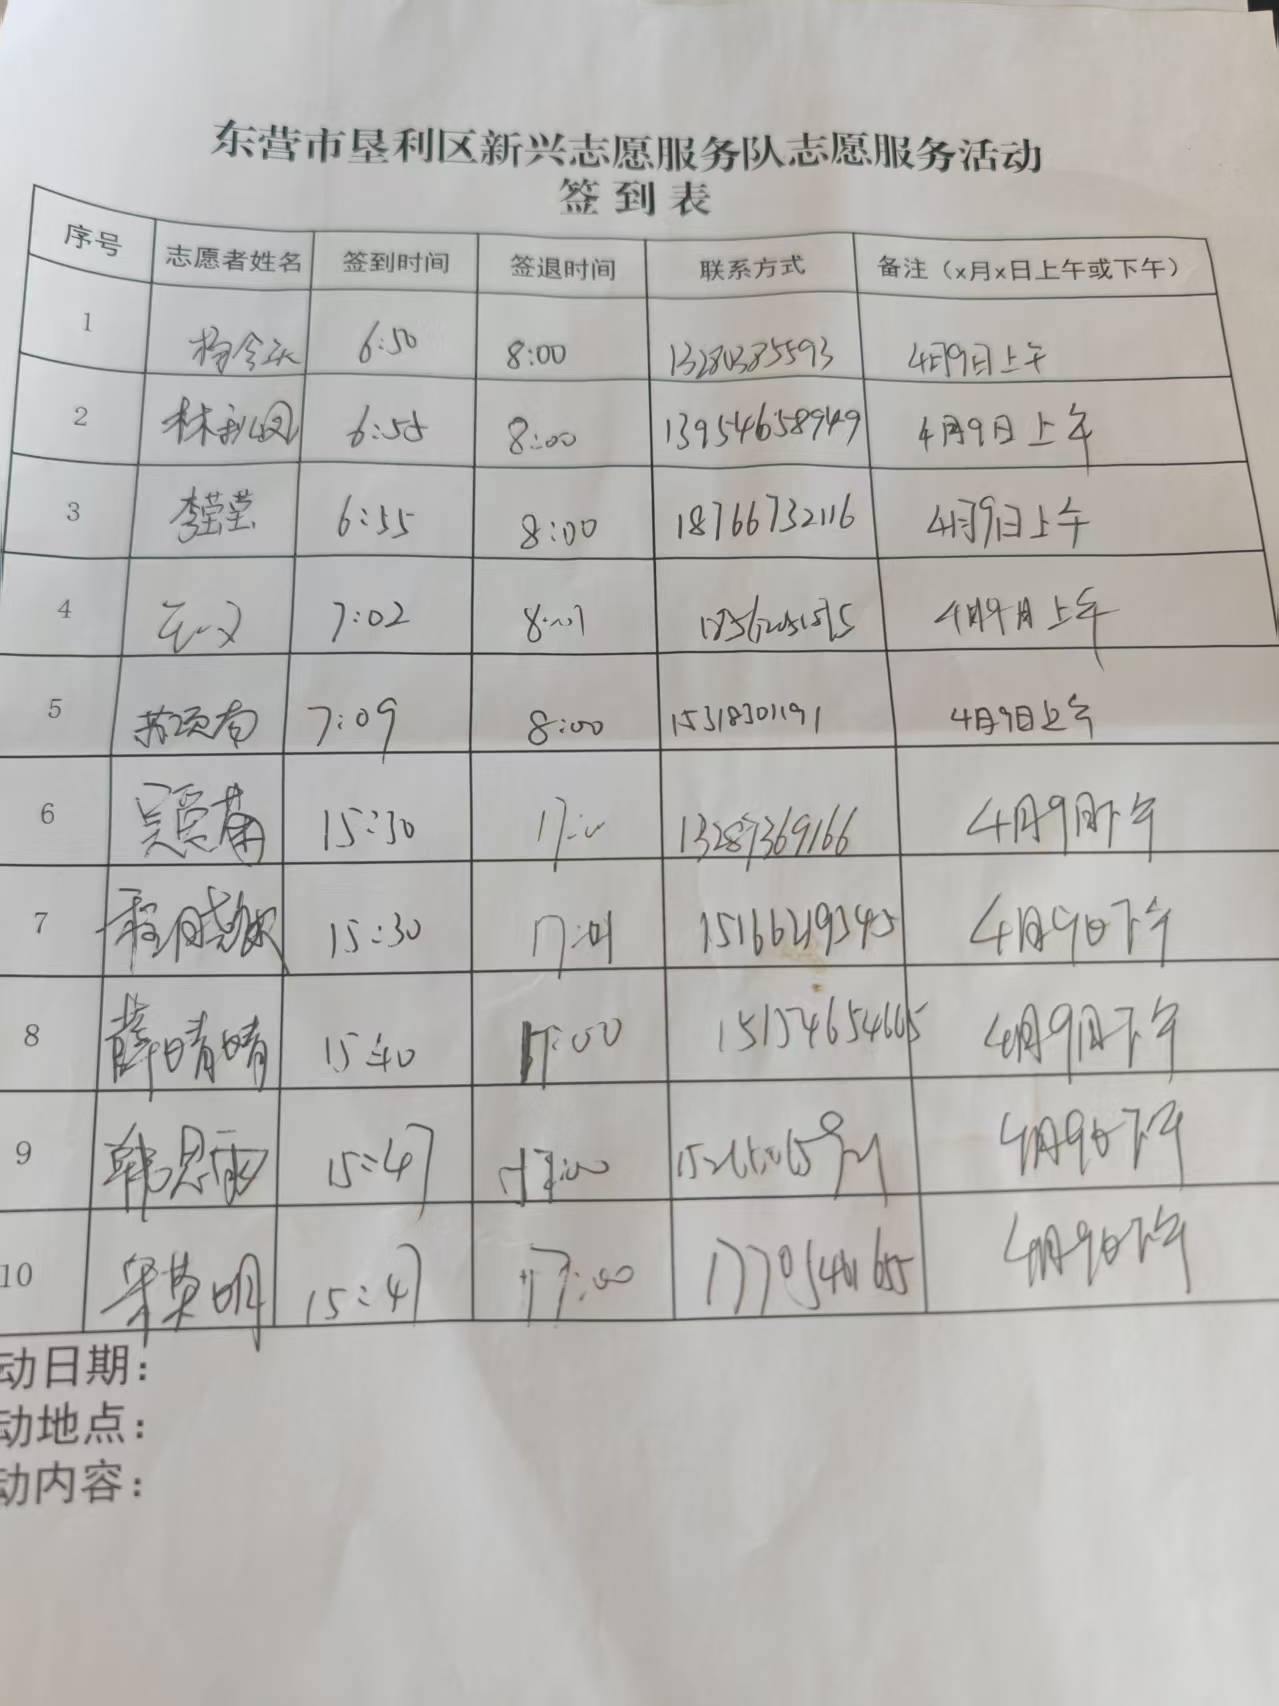 东营市垦利区新兴志愿服务队志愿服务活动
签到表
序号 志愿者姓名 签到时间 签退时间 联系方式 备注（x月x日上午或下午）
1 6:50 8:00 13280385593 4月9日上午
2 林利凤 6:55 8:00 13954658949 4月9日上午
3 李莹莹 6:55 8:00 18766732116 4月9日上午
4 7:02 4月9日上午
5 7:09 8:00 15318301191 4月9日上午
6 15:30 13287369166 4月9日下午
7 程晓敏 15:30 17:01 15166219345 4月9日下午
8 薛晴晴 15:40 17:00 4月9日下午
9 韩思雨 15:47 17:00 4月9日下午
10 宋英明 15:47 17:00 4月9日下午
动日期：
动地点：
动内容：